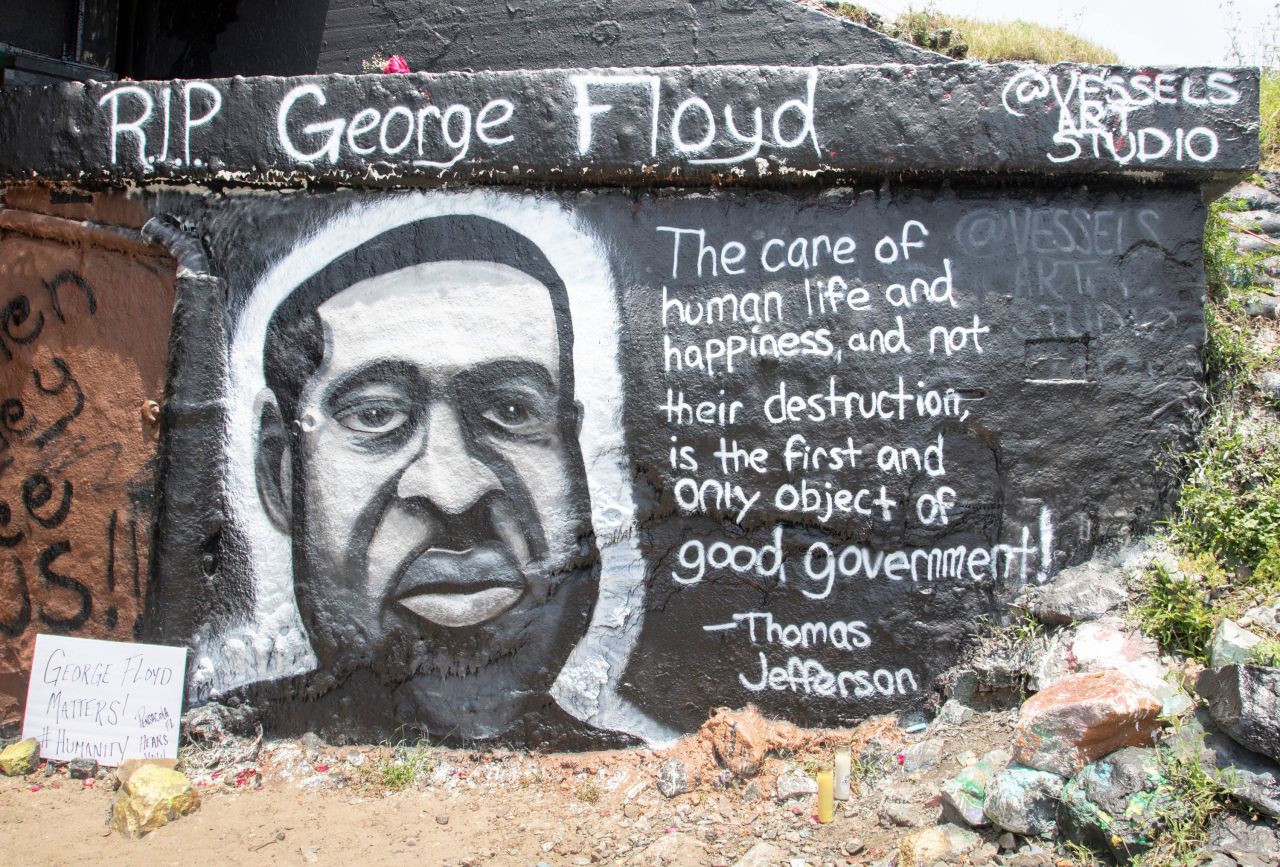 R.I.P. George Floyd
@VESSELS
ART
STUDIO
The care of
human life and
happiness, and not
their destruction,
is the first and
only object of
good government!
—Thomas
Jefferson
@VESSELS
ART
STUDIO
en
ey
ee
US!!
GEORGE FLOYD
MATTERS!
# HUMANITY
HEARS